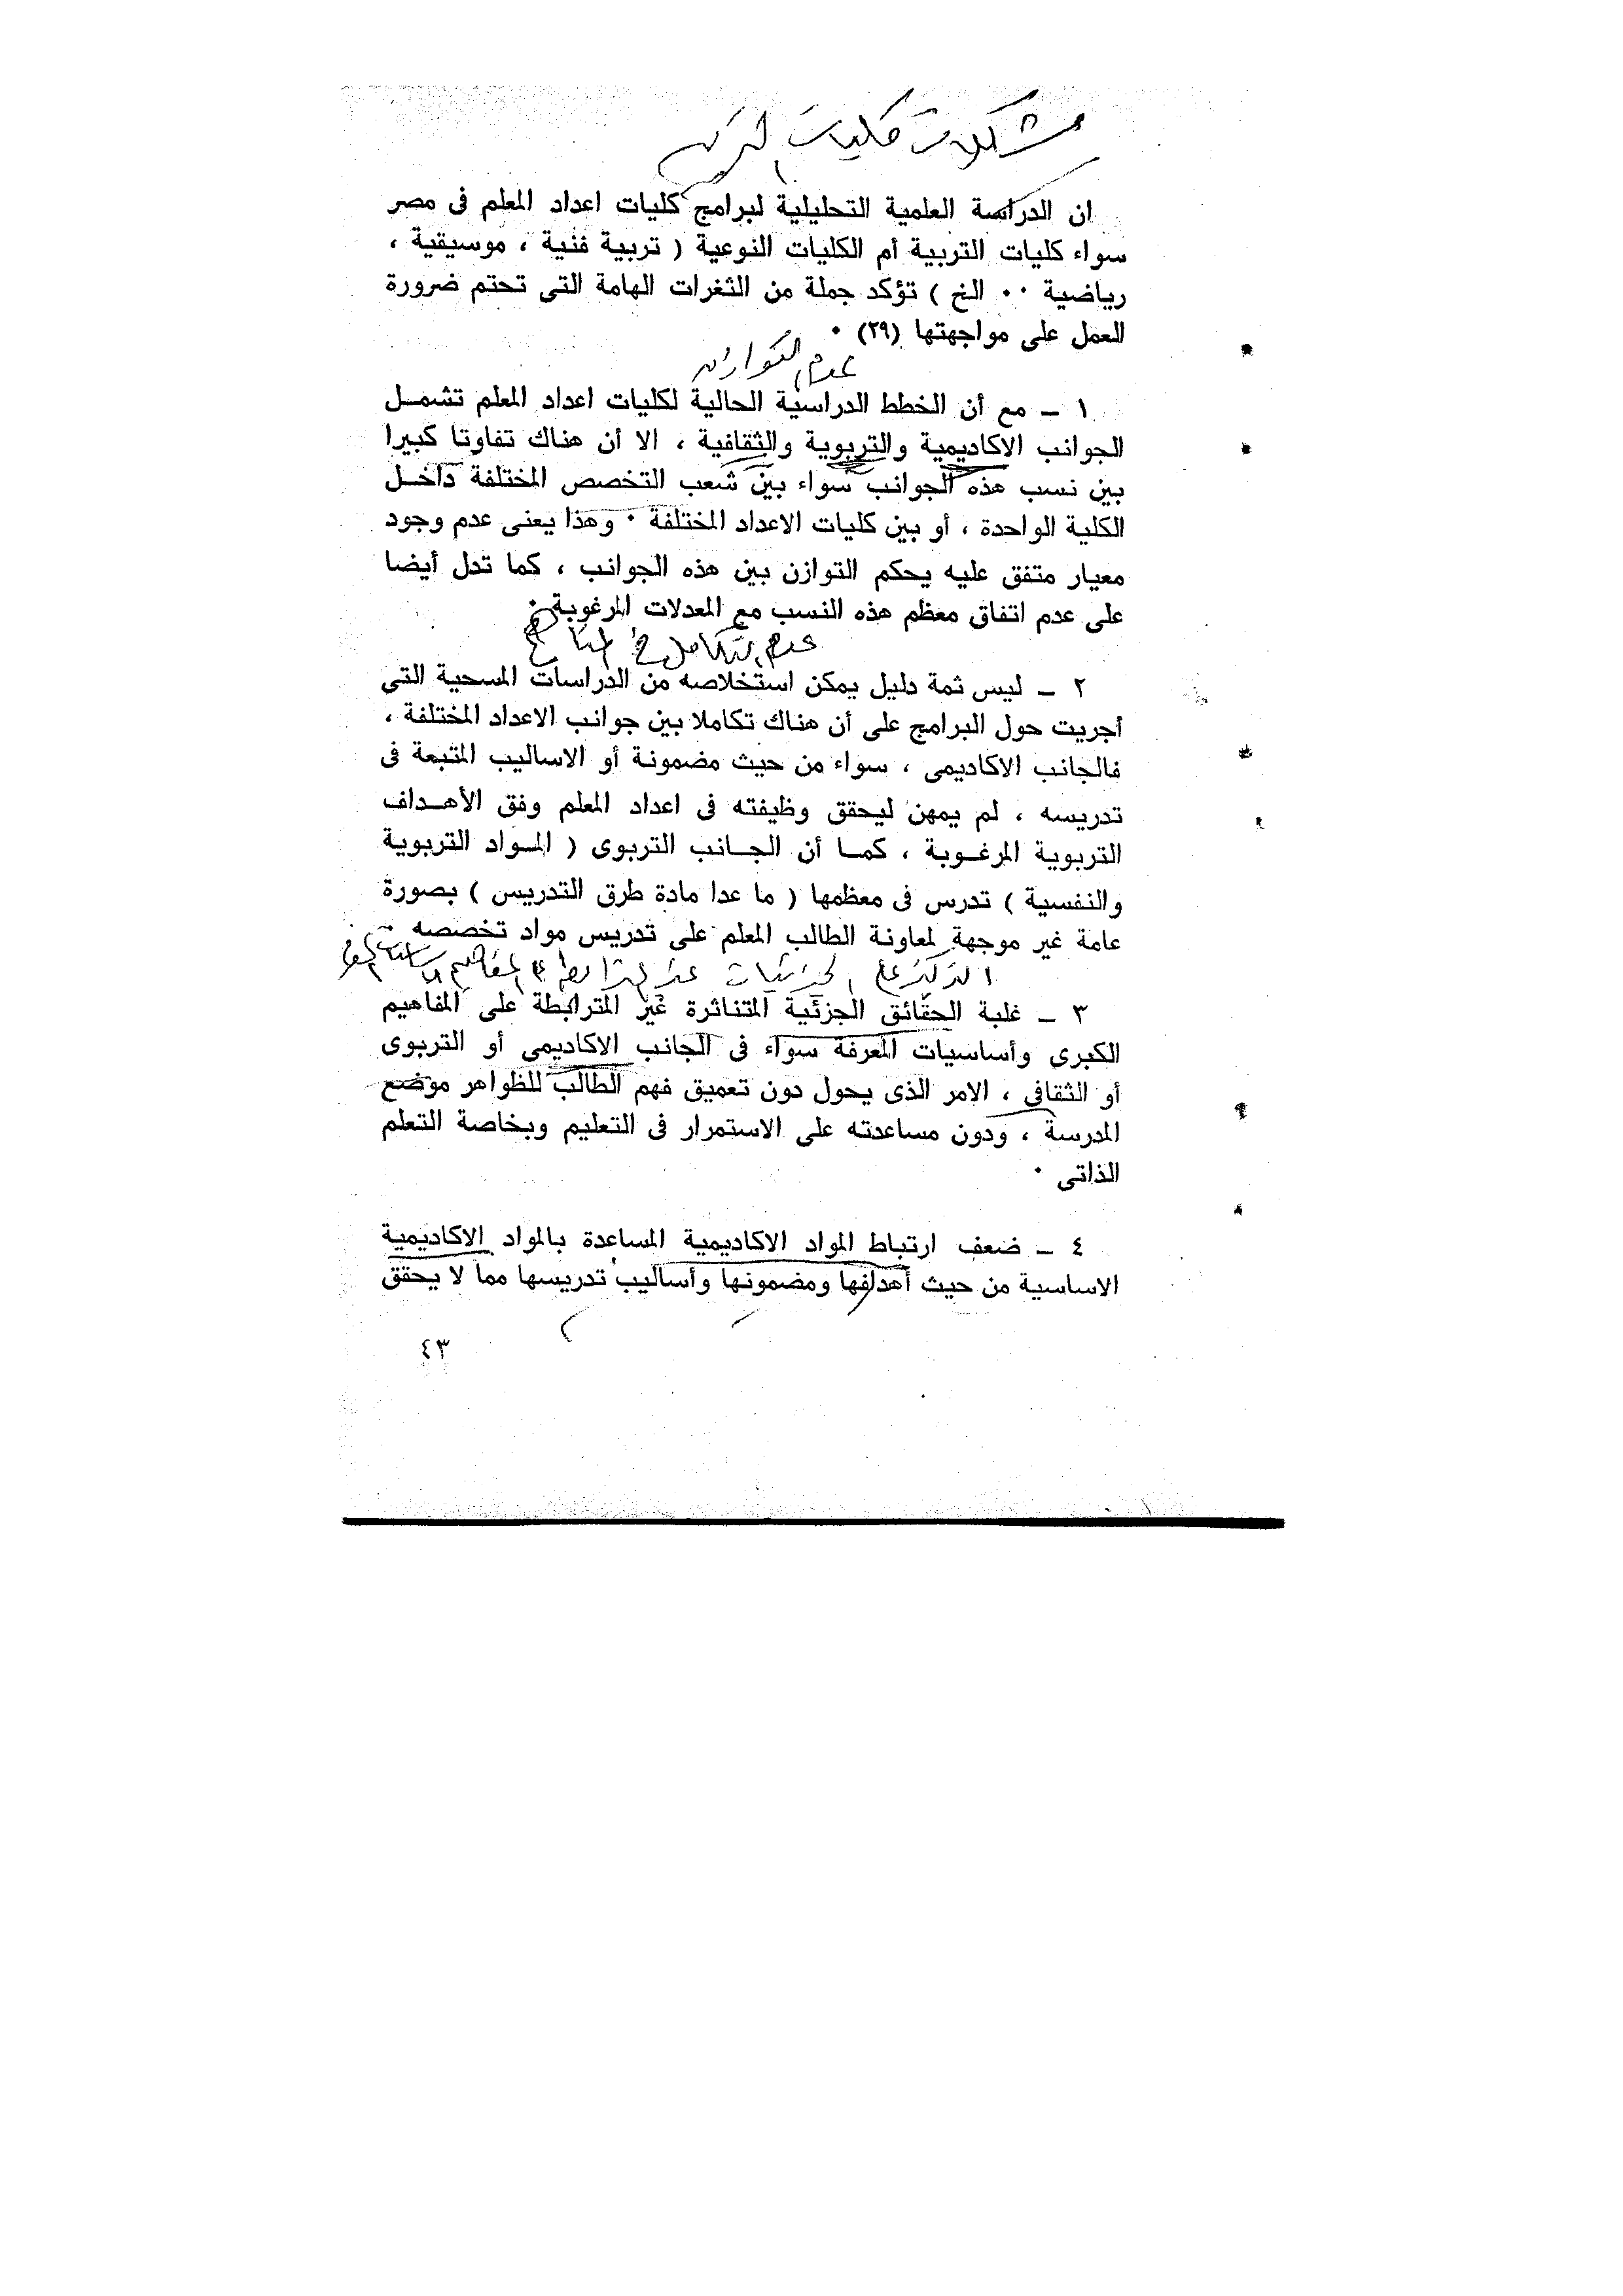 مشكلات كليات التربية
ان الدراسة العلمية التحليلية لبرامج كليات اعداد المعلم فى مصر
سواء كليات التربية أم الكليات النوعية ( تربية فنية ، موسيقية ،
رياضية ٠٠ الخ ) تؤكد جملة من الثغرات الهامة التى تحتم ضرورة
العمل على مواجهتها (٢٩) ٠
عدم التوازن
١ ـ مع أن الخطط الدراسية الحالية لكليات اعداد المعلم تشمـل
الجوانب الاكاديمية والتربوية والثقافية ، الا أن هناك تفاوتا كبيرا
بين نسب هذه الجوانب سواء بين شعب التخصص المختلفة داخـل
الكلية الواحدة ، أو بين كليات الاعداد المختلفة ٠ وهذا يعنى عدم وجود
معيار متفق عليه يحكم التوازن بين هذه الجوانب ، كما تدل أيضا
على عدم اتفاق معظم هذه النسب مع المعدلات المرغوبة ٠
عدم التكامل فى المناهج
٢ ـ ليس ثمة دليل يمكن استخلاصه من الدراسات المسحية التى
أجريت حول البرامج على أن هناك تكاملا بين جوانب الاعداد المختلفة ،
فالجانب الاكاديمى ، سواء من حيث مضمونة أو الاساليب المتبعة فى
تدريسه ، لم يمهن ليحقق وظيفته فى اعداد المعلم وفق الأهـداف
التربوية المرغـوبة ، كمـا أن الجـانب التربوى ( المـواد التربوية
والنفسية ) تدرس فى معظمها ( ما عدا مادة طرق التدريس ) بصورة
عامة غير موجهة لمعاونة الطالب المعلم على تدريس مواد تخصصه ٠
التركيز على الجزئيات
٣ ـ غلبة الحقائق الجزئية المتناثرة غير المترابطة على المفاهيم
الكبرى وأساسيات المعرفة سواء فى الجانب الاكاديمى أو التربوى
أو الثقافى ، الامر الذى يحول دون تعميق فهم الطالب للظواهر موضع
المدرسة ، ودون مساعدته على الاستمرار فى التعليم وبخاصة التعلم
الذاتى ٠
٤ ـ ضعف ارتباط المواد الاكاديمية المساعدة بالمواد الاكاديمية
الاساسية من حيث أهدافها ومضمونها وأساليب تدريسها مما لا يحقق
٤٣